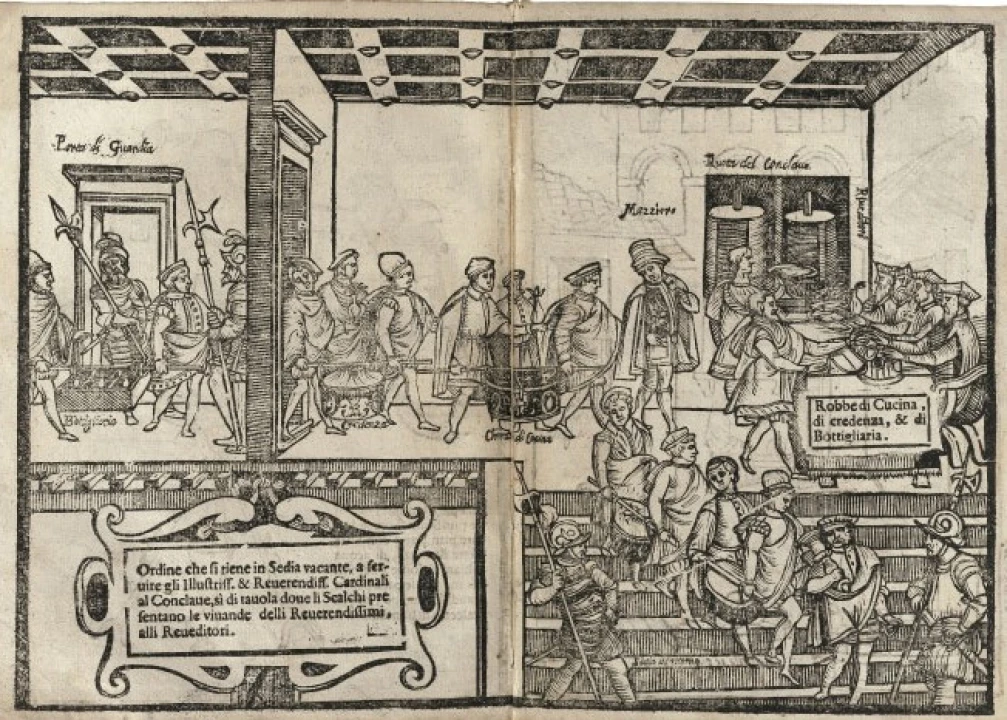 Porta di Guardia
Ruota del Conclave
Mazziero
Bottigliaria
Credenza
di Cucina
Robbe di Cucina,
di credenza, & di
Bottigliaria.
Ordine che si tiene in Sedia vacante, a ser-
uire gli Illustriss. & Reuerendiss. Cardinali
al Conclaue, sì di tauola doue li Scalchi pre
sentano le viuande delli Reuerendissimi,
alli Reueditori.